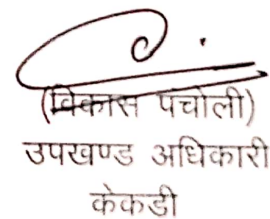 (विकास पचोली)
उपखण्ड अधिकारी
केकडी